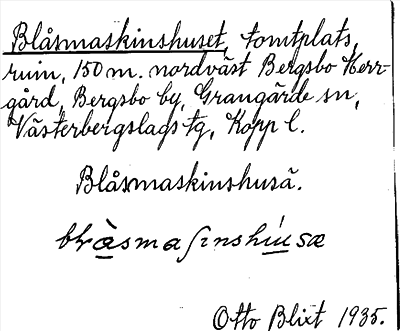 Blåsmaskinshuset, tomtplats,
ruin, 150 m. nordväst Bergsbo Herr-
gård, Bergsbo by, Grangärde sn,
Västerbergslags tg, Kopp l.
Blåsmaskinshusä.
blåsmaſinshúsæ
Otto Blixt 1935.